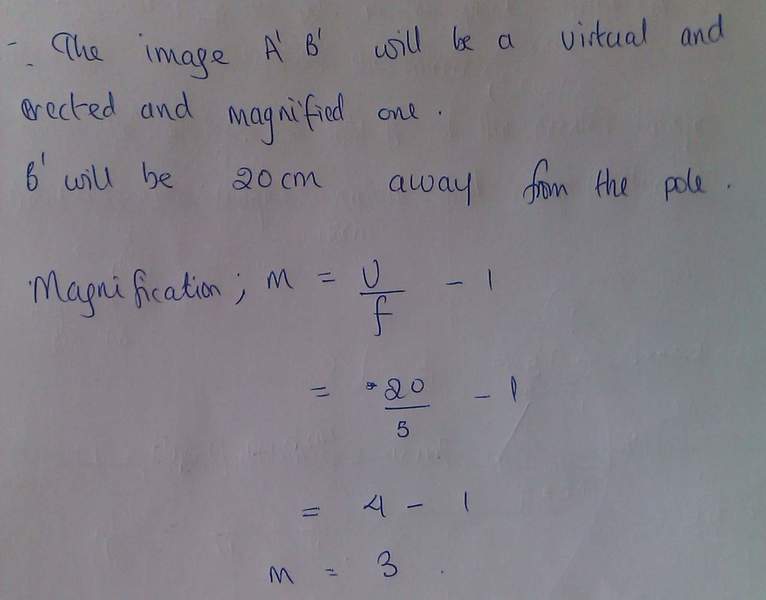 ∴ The image A' B' will be a virtual and
erected and magnified one.
B' will be 20cm away from the pole.
Magnification; m = υ/f - 1
= 20/5 - 1
= 4 - 1
m = 3.